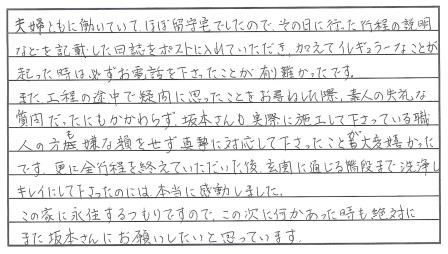 夫婦ともに働いていて、ほぼ留守宅でしたので、その日に行った行程の説明
などを記載した日誌をポストに入れていただき、加えてイレギュラーなことが
起った時は必ずお電話を下さったことが有難かったです。
また、工程の途中で疑問に思ったことをお尋ねした際、素人の失礼な
質問だったにもかかわらず、坂本さんも実際に施工して下さっている職
人の方も嫌な顔をせず真摯に対応して下さったことが大変嬉かった
です。更に全行程を終えていただいた後、玄関に通じる階段まで洗浄し
キレイにして下さったのには、本当に感動しました。
この家に永住するつもりですので、この次に何かあった時も絶対に
また坂本さんにお願いしたいと思っています。